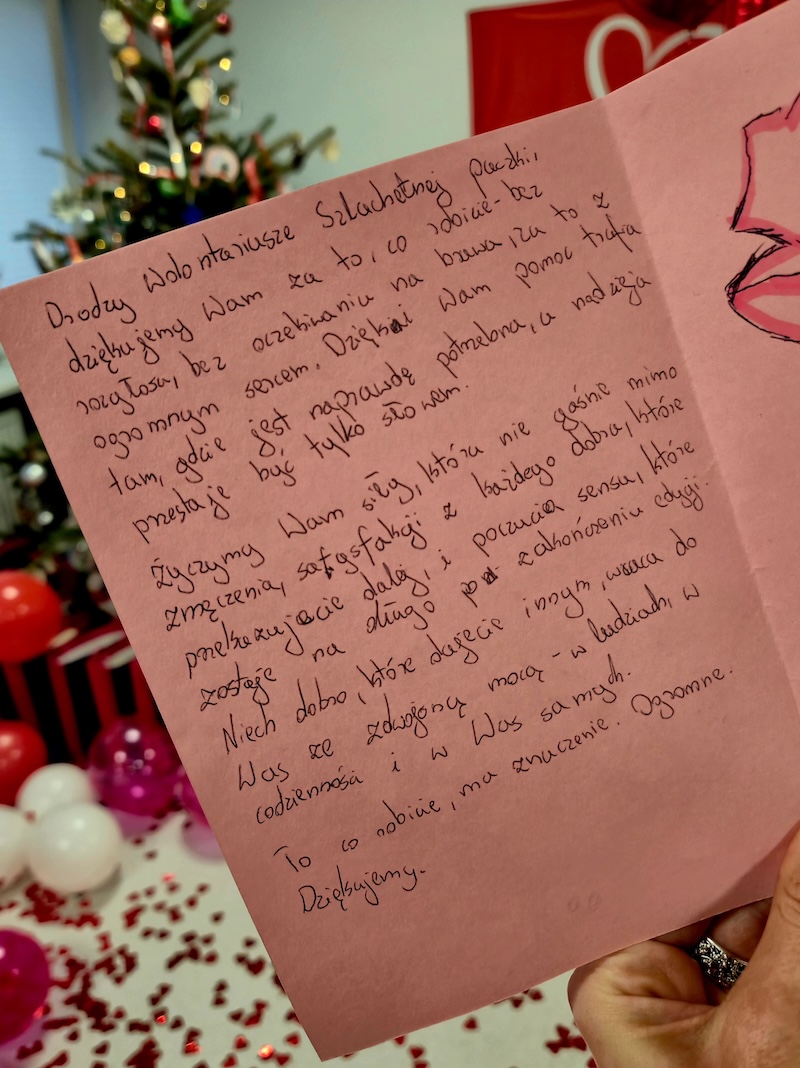 Drodzy Wolontariusze Szlachetnej paczki,
dziękujemy Wam za to, co robicie - bez
rozgłosu, bez oczekiwania na brawa, za to z
ogromnym sercem. Dzięki Wam pomoc trafia
tam, gdzie jest naprawdę potrzebna, a nadzieja
przestaje być tylko słowem.
Życzymy Wam siły, która nie gaśnie mimo
zmęczenia, satysfakcji z każdego dobra, które
przekazujecie dalej, i poczucia sensu, które
zostaje na długo po zakończeniu edycji.
Niech dobro, które dajecie innym, wraca do
Was ze zdwojoną mocą - w ludziach, w
codzienności i w Was samych.
To co robicie, ma znaczenie. Ogromne.
Dziękujemy.